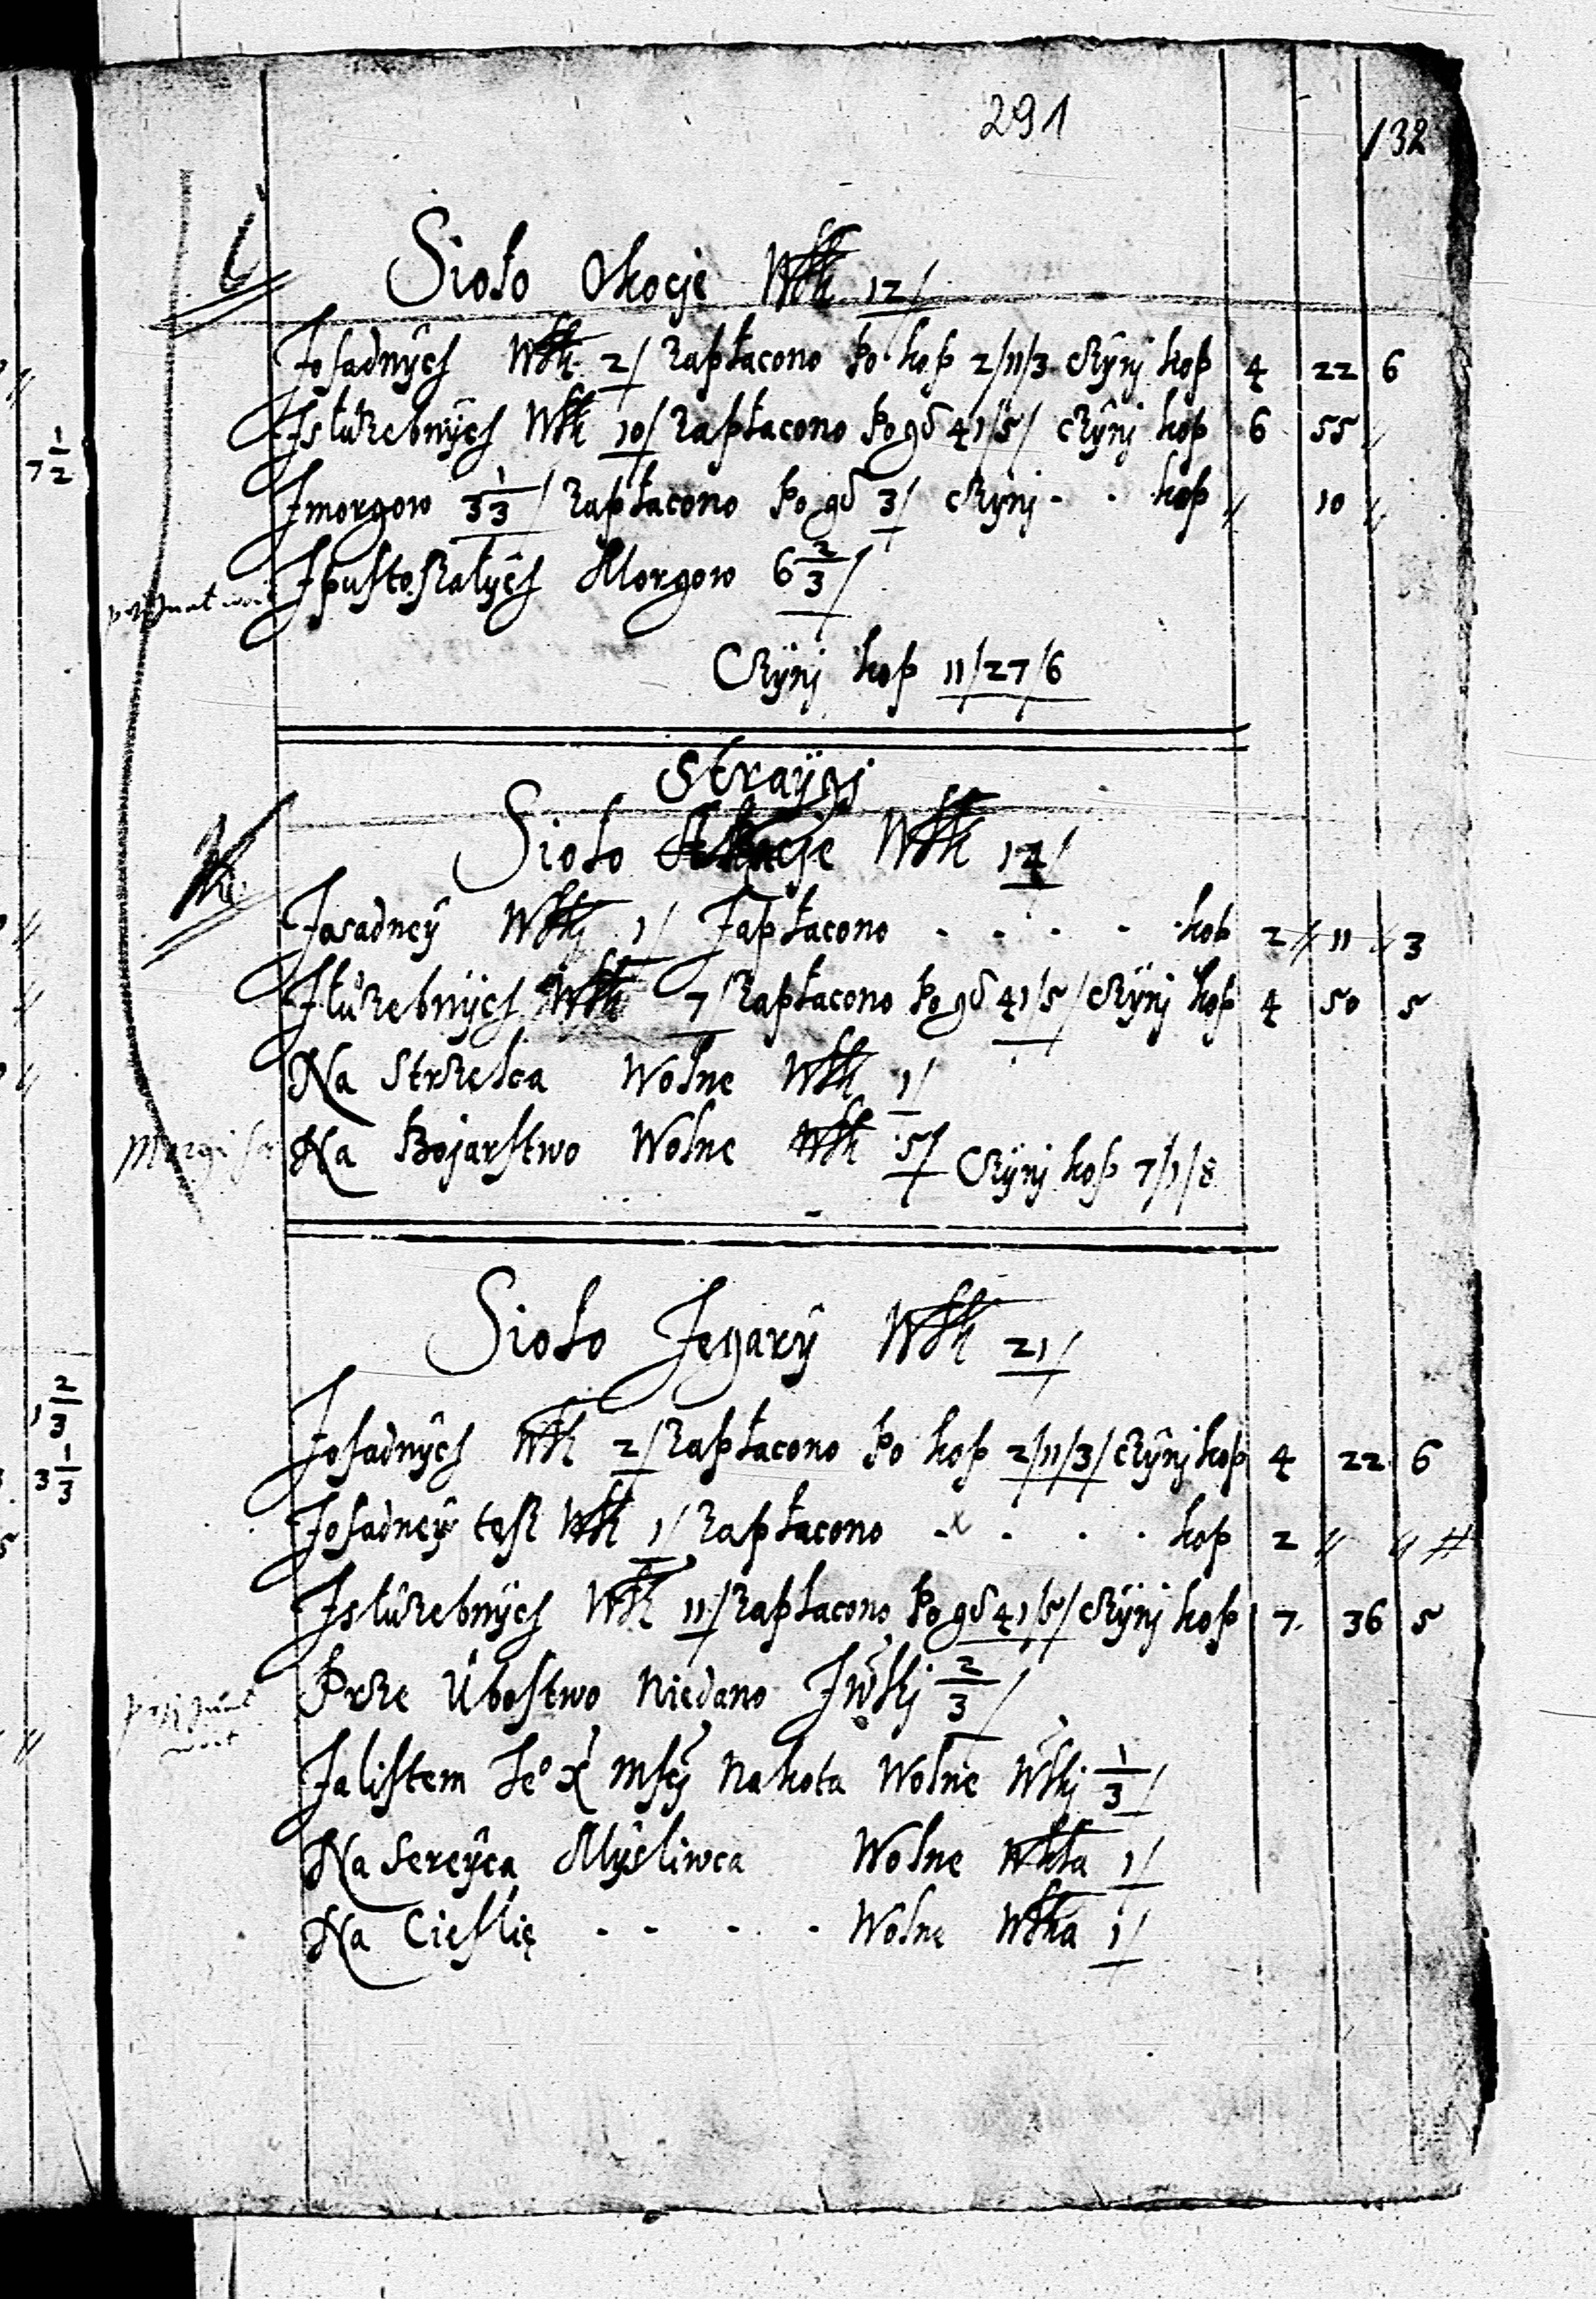 291
132
Sioło Okocje Włk 12/
Zosadnÿch Włk 2/ Zapłacono po kop 2/11/3 cżÿnj kop 4 22 6
Zsłużebnÿch Włk 10/ Zapłacono po gδ 41/5/ cżÿnj kop 6 55 //
Zmorgow 3 1/3/ Zapłacono po gδ 3/ cżÿnj - - kop // 10 //
Zpustoszałÿch Morgow 6 2/3/
Cżÿnj kop 11/27/6
Straÿgj
Sioło Okocje Włk 14/
Zosadneÿ Włkj 1/ Zapłacono - - - - kop 2 // 11 // 3
Złużebnÿch Włk 7 Zapłacono po gδ 41/5/ cżÿnj kop 4 50 5
Na Strzelca Wolne Włk 1/
Na Bojarstwo Wolne Włk 5/ Cżÿnj kop 7/1/8
Sioło Zegarÿ Włk 21/
Zosadnÿch Włk 2/ Zapłacono po kop 2/11/3/ cżÿnj kop 4 22 6
Zosadneÿ tesz Włk 1/ Zapłacono - x . . . kop 2 // // //
Zsłużebnÿch Włk 11/ Zapłacono po gδ 41/5/ cżÿnj kop 7 36 5
Prze Ubostwo Niedano Zwłkj 2/3/
Zalistem Je° X Mscj Nakota Wolne Włkj 1/3/
Na Sereÿca Mÿsliwca Wolne Włka 1/
Na Cieslię - - - - Wolne Włka 1/
7 1/2
1 2/3
3 1/3